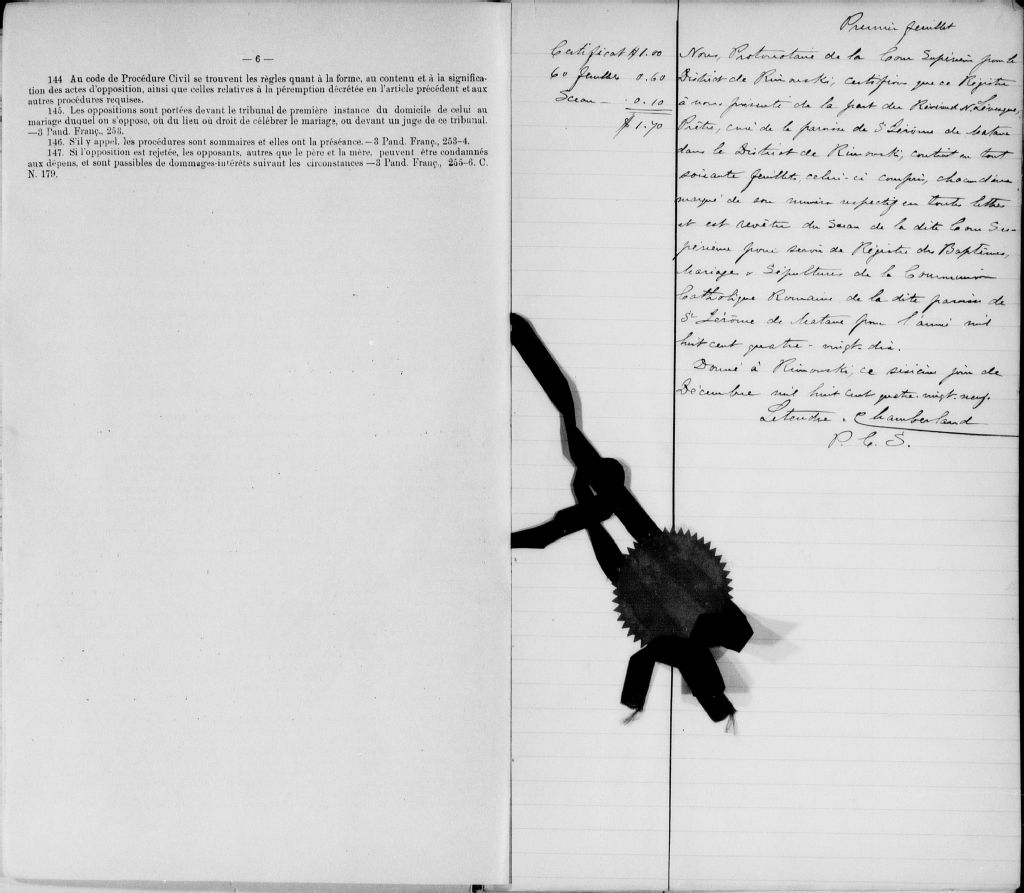 — 6 —
144 Au code de Procédure Civil se trouvent les règles quant à la forme, au contenu et à la significa-
tion des actes d'opposition, ainsi que celles relatives à la péremption décrétée en l'article précédent et aux
autres procédures requises.
145. Les oppositions sont portées devant le tribunal de première instance du domicile de celui au
mariage duquel on s'oppose, où du lieu où droit de célébrer le mariage, ou devant un juge de ce tribunal.
—3 Pand. Franç., 253.
146. S'il y appel, les procédures sont sommaires et elles ont la préséance.—3 Pand. Franç., 253-4.
147. Si l'opposition est rejetée, les opposants, autres que le père et la mère, peuvent être condamnés
aux dépens, et sont passibles de dommages-intérêts suivant les circonstances —3 Pand. Franç., 255-6. C.
N. 179.
Premier feuillet
Certificat $1.00
60 feuillets 0.60
Sceau — 0.10
$1.70
Nous, Protonotaire de la Cour Supérieure pour le
District de Rimouski, certifions que ce Régistre
à nous présenté de la part du Révérend N. Lévesque,
Prêtre, curé de la paroisse de St Jérôme de Matane
dans le District de Rimouski, contient en tout
soixante feuillets, celui-ci compris, chacun d'eux
marqué de son numéro respectif en toutes lettres
et est revêtu du Sceau de la dite Cour Su-
périeure pour servir de Régistre des Baptêmes,
Mariages & Sépultures de la Communion
Catholique Romaine de la dite paroisse de
St Jérôme de Matane pour l'année mil
huit cent quatre-vingt-dix.
Donné à Rimouski, ce sixième jour de
Décembre mil huit cent quatre-vingt-neuf.
Letendre & Chamberland
P. C. S.